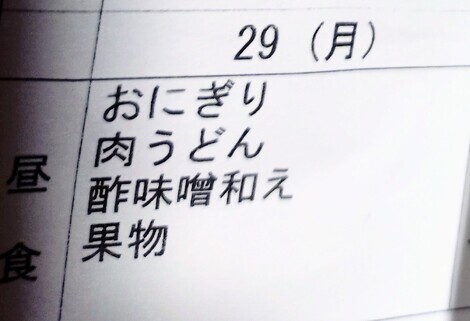 29（月）
昼食
おにぎり
肉うどん
酢味噌和え
果物